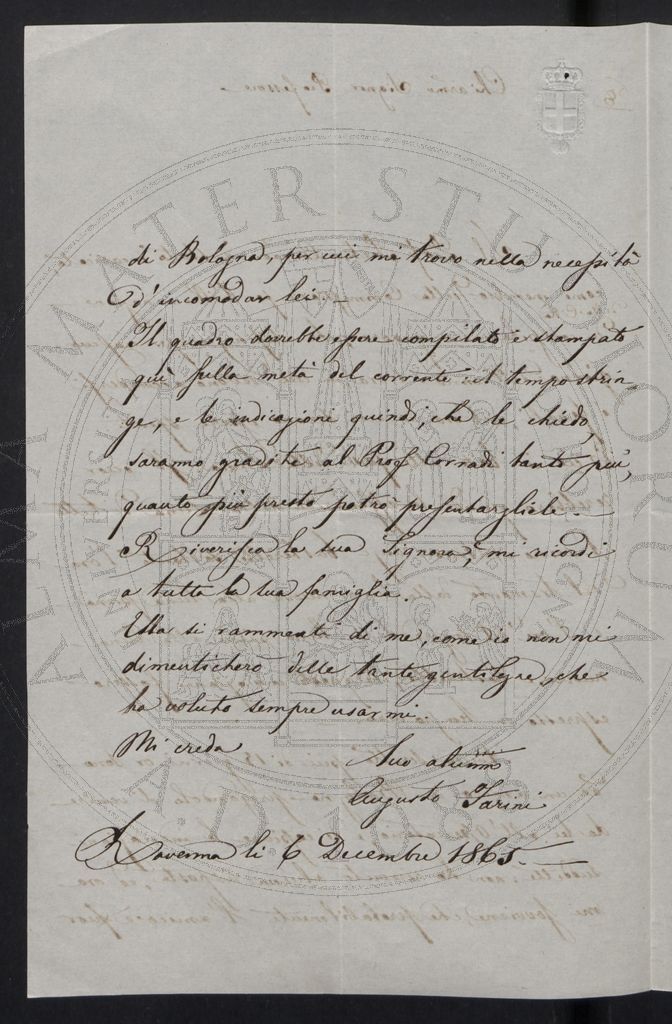 di Bologna, per cui mi trovo nella necessità
d'incomodar lei.—
Il quadro dovrebbe essere compilato e stampato
quì sulla metà del corrente: il tempo strin-
ge, e le indicazioni quindi, che le chiedo,
saranno gradite al Prof Corradi tanto più,
quanto più presto potrò presentargliele.—
Riverisca la sua Signora, mi ricordi
a tutta la sua famiglia.
Ella si rammenti di me, come io non mi
dimenticherò delle tante gentilezze, che
ha voluto sempre usarmi
Mi creda
Suo
Augusto Farini
Ravenna li 6 Decembre 1865.—